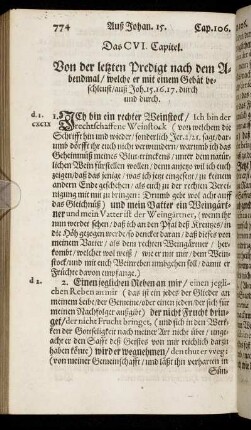 774 Auß Johan. 15. Cap. 106.
Das CVI. Capitel.
Von der letzten Predigt nach dem A-
bendmal/ welche er mit einem Gebät be-
schleust/ auß Joh. 15.16.17. durch
und durch.
d. 1. 1. Ich bin ein rechter Weinstock/ Ich bin der
rechtschaffene Weinstock (von welchem die
Schrifft hin und wieder/ sonderlich Jer. 2/21. sagt/ dar-
umb dörfft ihr euch nicht verwundern/ warumb ich das
Geheimnüß meines Blut unter dem natür-
lichen Wein fürstellen wollen/ denn anzeyo wil ich euch
zeigen/ daß das jenige/ was ich jetzt eingesetzt/ zu keinem
andern Ende geschehen/ als euch zu der rechten Verei-
nigung mit mir zu bringen: Drumb gebt wol acht auff
das Gleichnüß) und mein Vatter ein Weingärt-
ner und mein Vatter ist der Weingärtner/ (wenn ihr
nun werdet sehen/ daß ich an den Pfal des Kreutzes/ in
die Höh gezogen werde/ so dencket daran/ daß dieses von
meinem Vatter/ als dem rechten Weingärtner/ her-
kombt/ welcher wol weiß/ wie er mit mir/ dem Wein-
stock/ und mit euch Weinreben umbgehen sol/ damit er
Früchte davon empfange.)
d 2. 2. Einen jeglichen Reben an mir/ einen jegli-
chen Reben an mir (das ist ein jedes der Glieder an
meinem Leibe/ der Gemeine/ oder einen jeden/ der sich für
meinen Nachfolger außgibt) der nicht Frucht brin-
get/ der nicht Frucht bringet, (und sich in den Werken
der Gottseligkeit nach meiner Art nicht übet/ unge-
acht er den Safft deß Geistes von mir reichlich darzu
haben könte) wird er wegnehmen/ den thut er vvegg
(von meiner Gemeinschafft/ und läßt ihn verharren in
Sün-